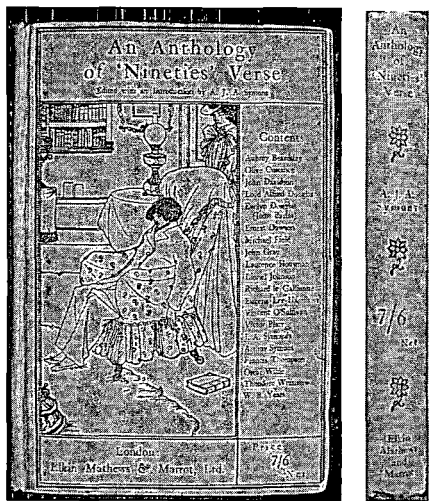 An Anthology
of 'Nineties' Verse
Edited with an Introduction by A. J. A. Symons
Contents
Aubrey Beardsley
Olive Custance
John Davidson
Lord Alfred Douglas
Ernest Dowson
Michael Field
John Gray
Laurence Housman
Lionel Johnson
Richard le Gallienne
Vincent O'Sullivan
Victor Plarr
Arthur Symons
Francis Thompson
Oscar Wilde
Theodore Wratislaw
W. B. Yeats
London
Elkin Mathews & Marrot, Ltd.
Price
7/6
Net
An
Anthology
of
'Nineties'
Verse
A. J. A.
Symons
7/6
Net
Elkin
Mathews
and
Marrot